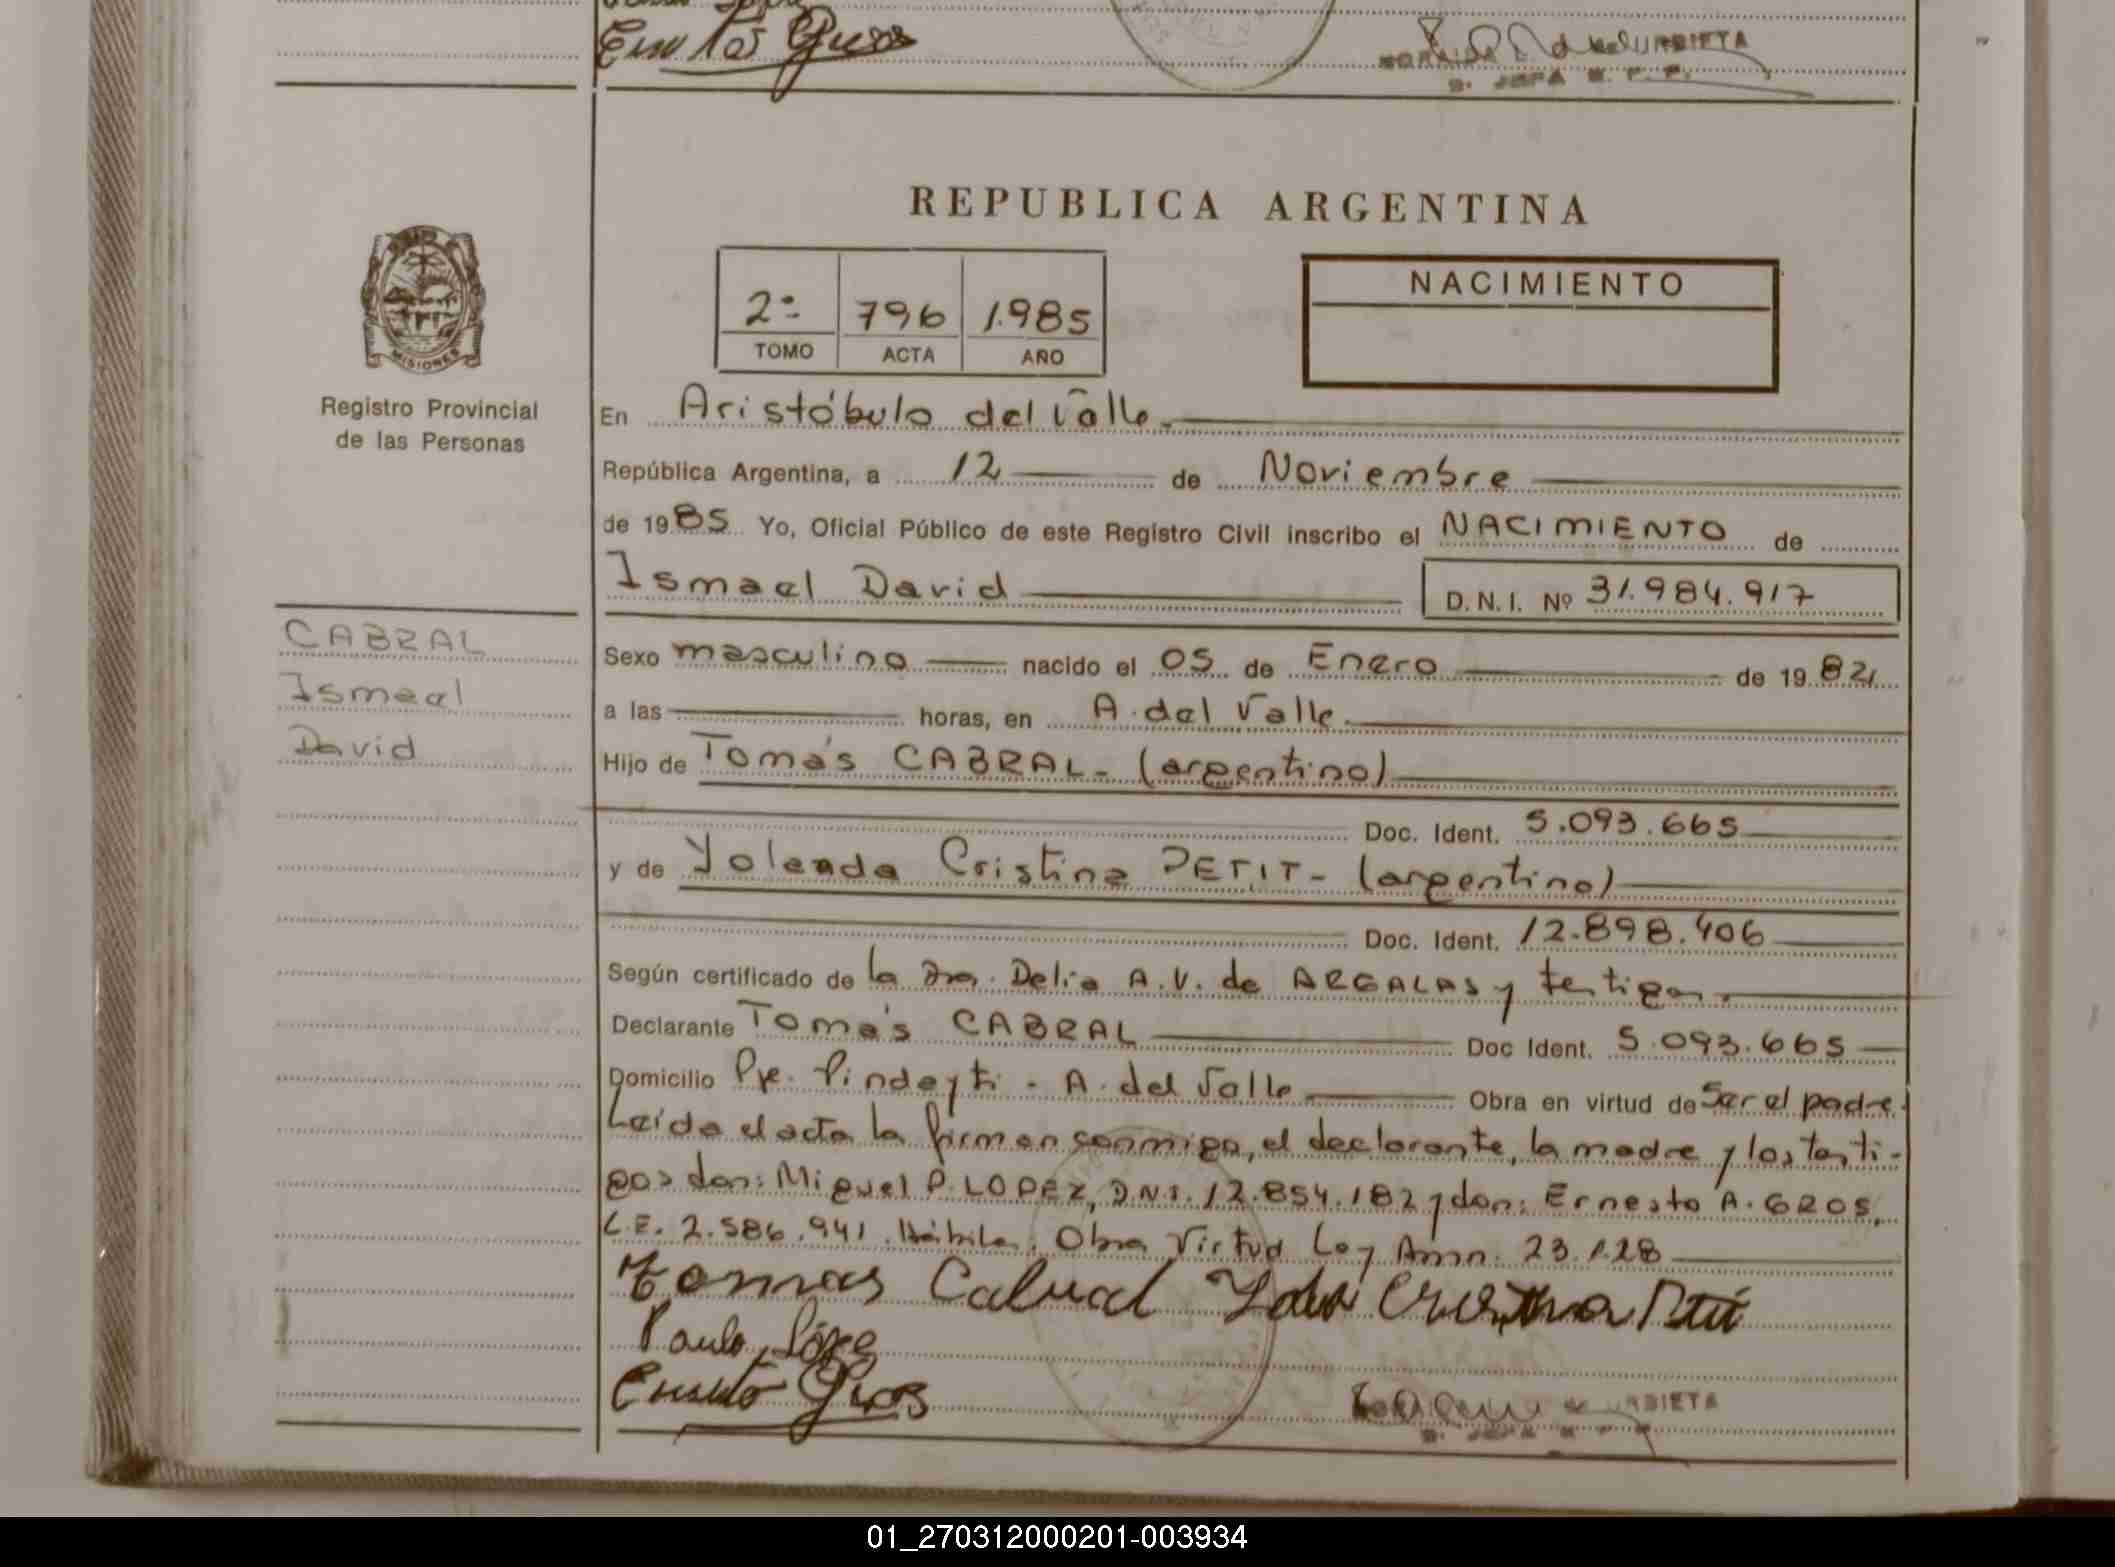 REPUBLICA ARGENTINA
2º 796 1.985
TOMO ACTA AÑO
NACIMIENTO
MISIONES
Registro Provincial
de las Personas
En Aristóbulo del Valle.
República Argentina, a 12 de Noviembre
de 1985 Yo, Oficial Público de este Registro Civil inscribo el NACIMIENTO de
Ismael David D.N.I. Nº 31.984.917
CABRAL
Ismael
David
Sexo masculino nacido el 05 de Enero de 19
a las horas, en A. del Valle.
Hijo de Tomás CABRAL - (argentino)
Doc. Ident. 5.093.665
y de Yolenda Cristina PETIT - (argentina)
Doc. Ident. 12.898.406
Según certificado de la Dra. Delia A.V. de ARGALAS y testigos.
Declarante Tomás CABRAL Doc Ident. 5.093.665
Domicilio Pje. Pindayti - A. del Valle Obra en virtud de Ser el padre.
Leída el acta la firman conmigo, el declarante, la madre y los testi-
gos don: Miguel P. LOPEZ, D.N.I. 12.854.182 y don: Ernesto A. GROS,
L.E. 2.586.941. Hábiles. Obra Virtud Ley Amn. 23.128
Tomas Cabral Cristina
Paulo López
Ernesto Gros
URBIETA
01_270312000201-003934